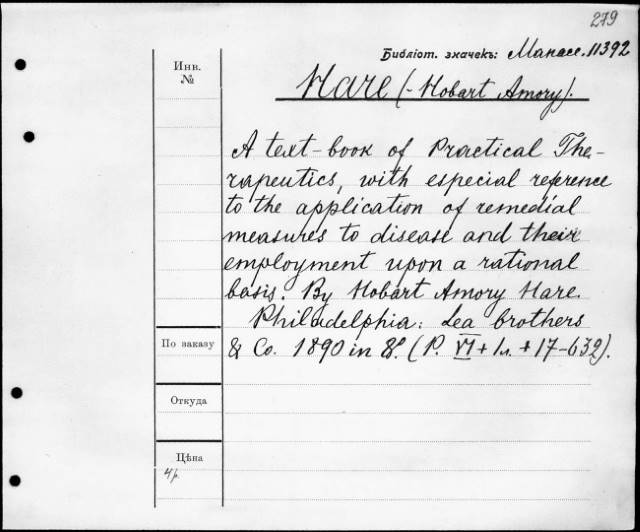 279
Библіот. значекъ: Манасс. 11392
Инв.
№
Hare (-Hobart Amory).
A text-book of Practical The-
rapeutics, with especial reference
to the application of remedial
measures to disease and their
employment upon a rational
basis. By Hobart Amory Hare.
Philadelphia: Lea brothers
& Co. 1890 in 8º. (P. VI + 1л. + 17-632).
По заказу
Откуда
Цѣна
4р.